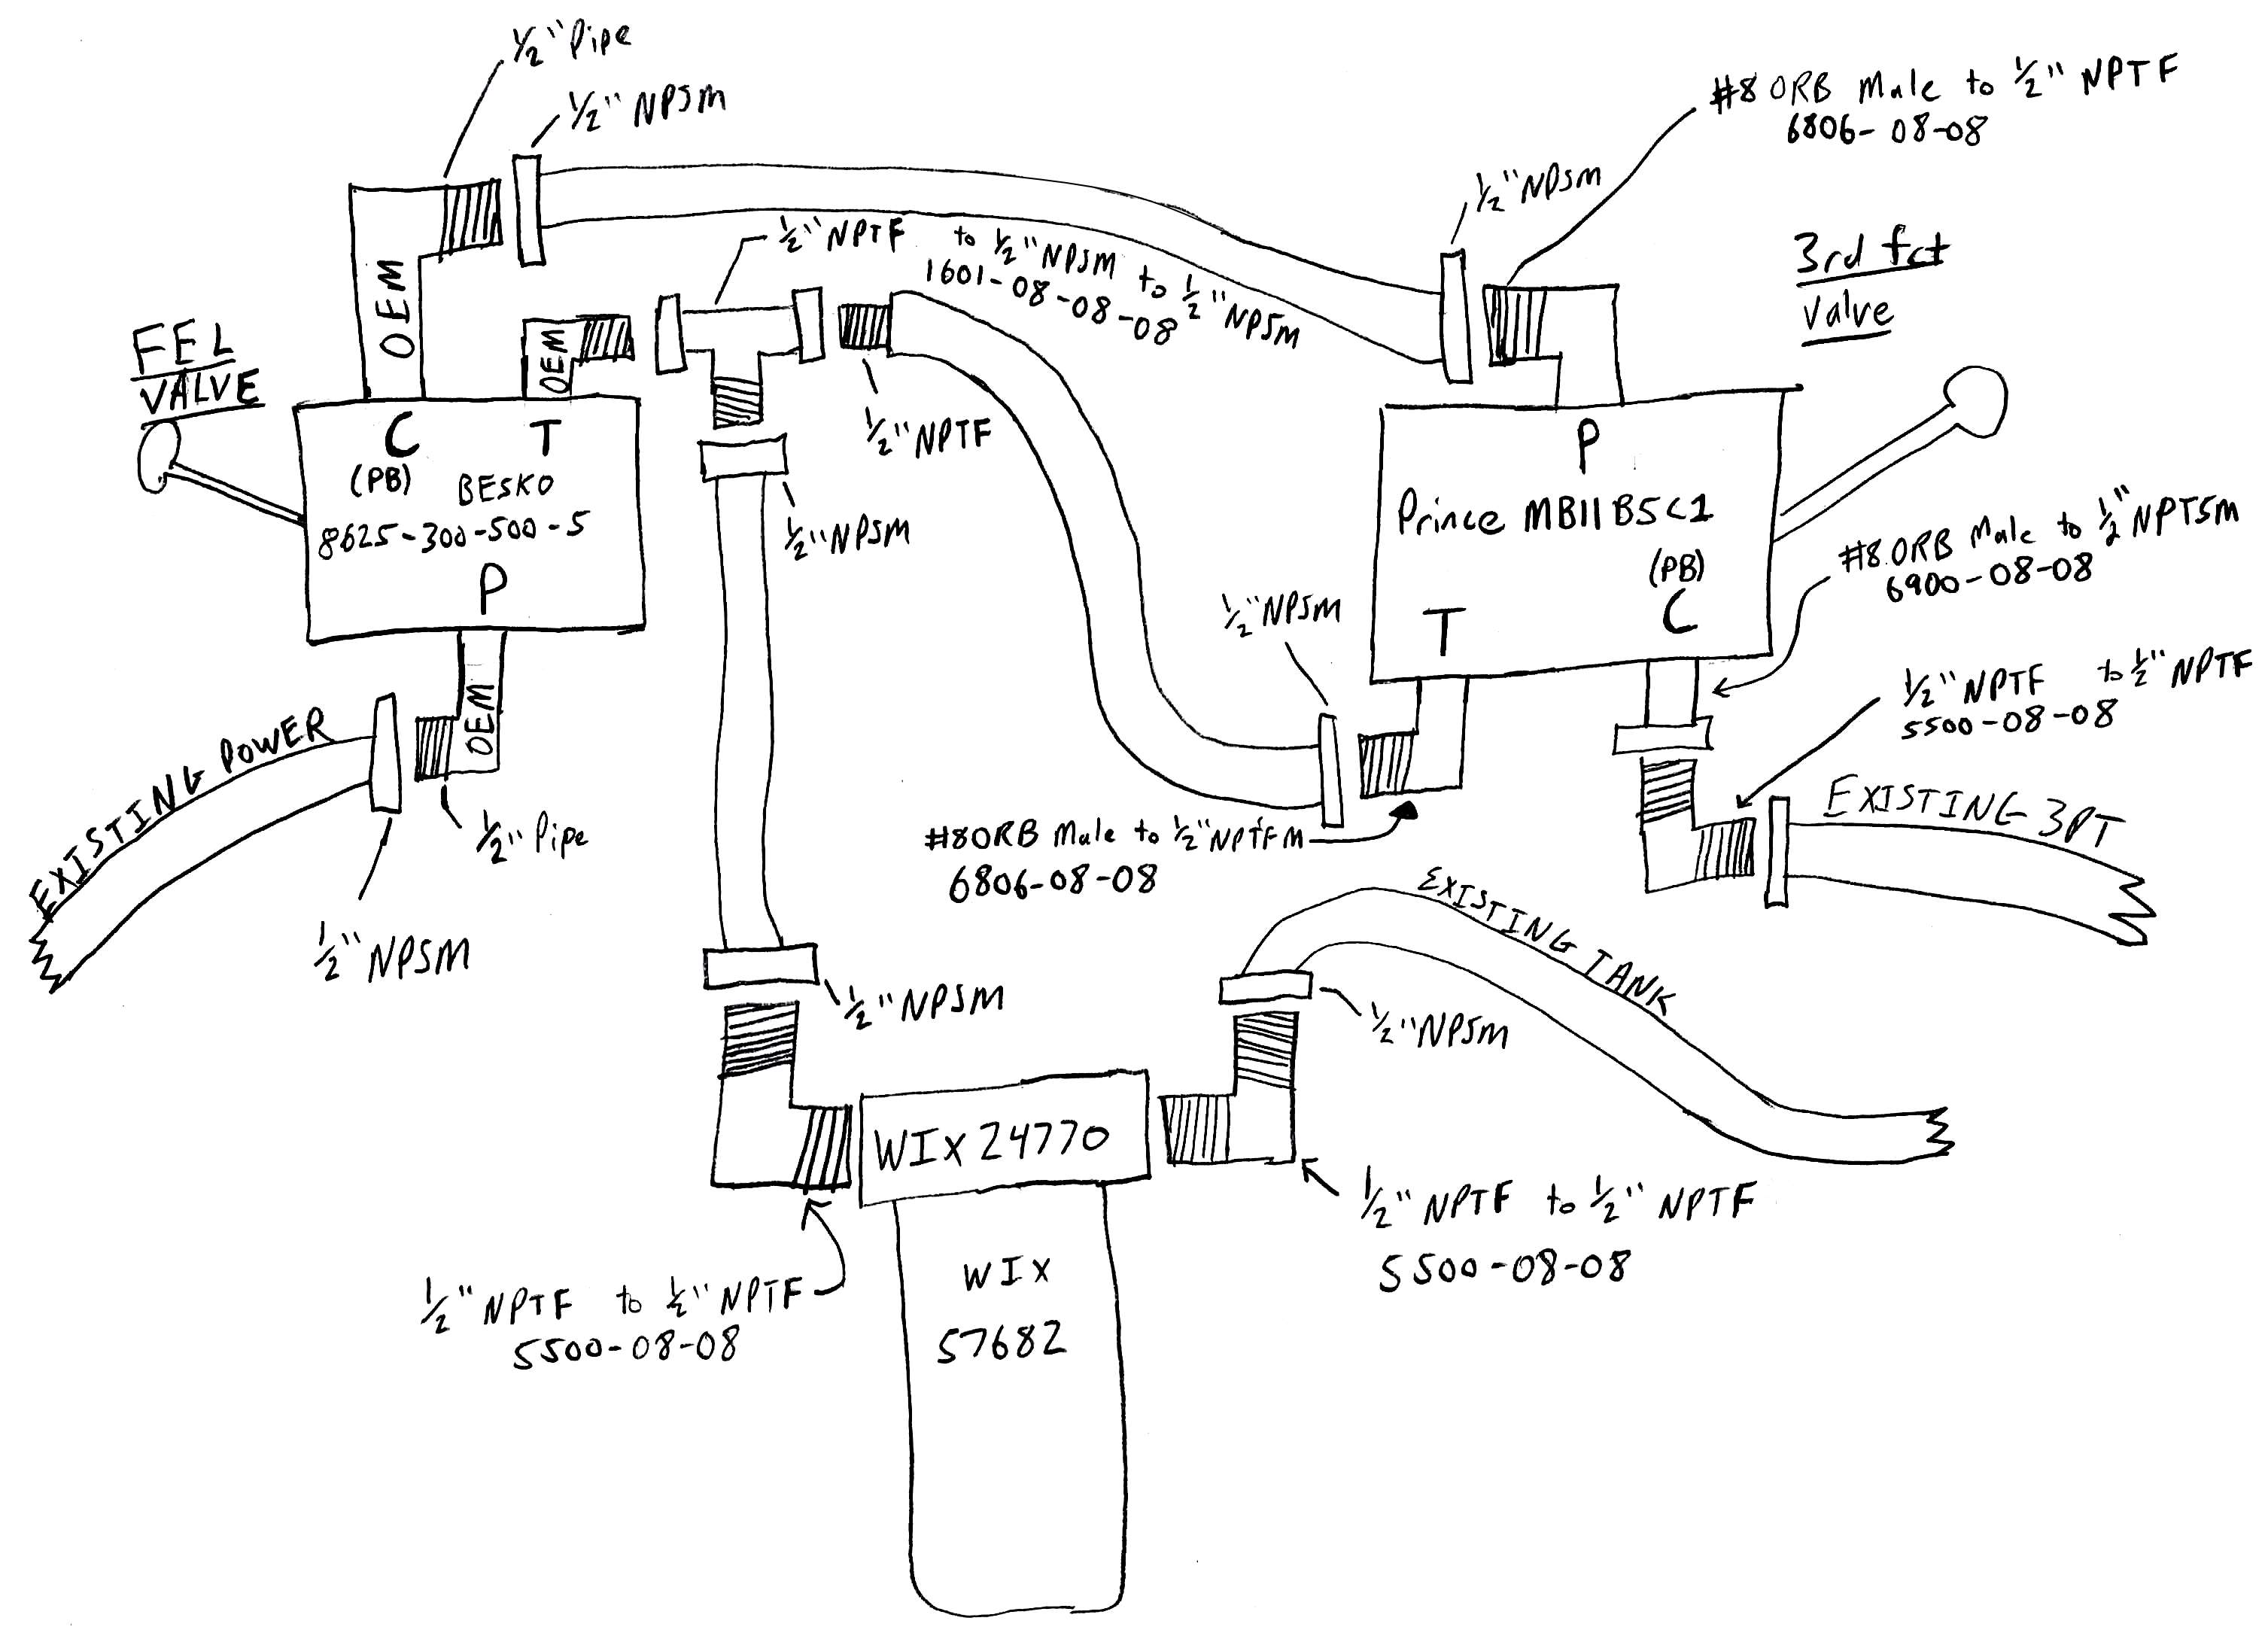 1/2" Pipe
1/2" NPSM
#8 ORB Male to 1/2" NPTF
6806-08-08
1/2" NPSM
3rd fct
Valve
1/2" NPTF to 1/2" NPSM to 1/2" NPSM
1601-08-08-08
OEM
OEM
FEL
VALVE
1/2" NPTF
C
T
(PB)
BESKO
8625-300-500-5
P
1/2" NPSM
P
Prince MB11B5C1
(PB)
T
C
#8 ORB Male to 1/2" NPTSM
6900-08-08
1/2" NPSM
1/2" NPTF to 1/2" NPTF
5500-08-08
OEM
EXISTING POWER
1/2" Pipe
1/2" NPSM
#8 ORB Male to 1/2" NPTFM
6806-08-08
EXISTING 3PT
EXISTING TANK
1/2" NPSM
1/2" NPSM
WIX 24770
1/2" NPTF to 1/2" NPTF
5500-08-08
WIX
57682
1/2" NPTF to 1/2" NPTF
5500-08-08